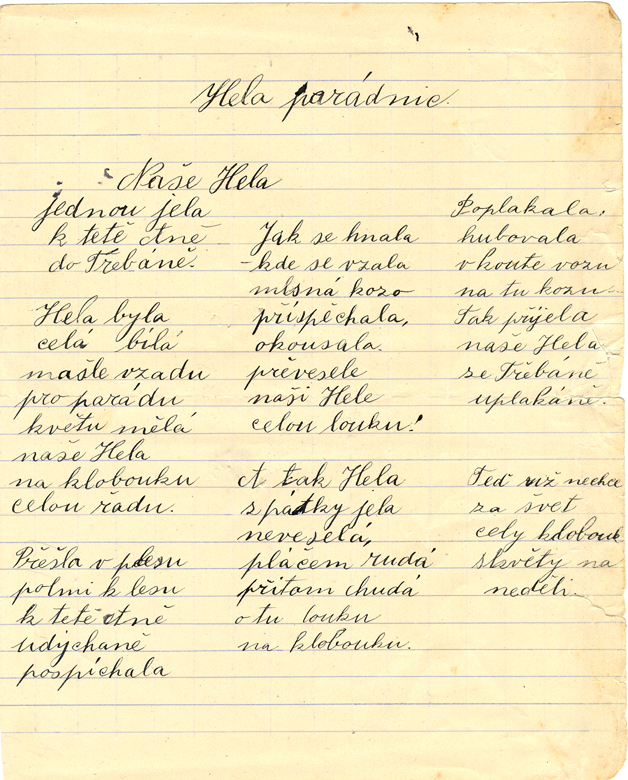 Hela parádnic.
Naše Hela
jednou jela
k tetě Aně
do Třebáně.
Hela byla
celá bílá
mašle vzadu
pro parádu
květu mělá
naše Hela
na klobouku
celou řadu.
Přešla v plesu
polmi k lesu
k tetě Aně
udýchaně
pospíchala
Jak se hnala
-kde se vzala
mlsná kozo
příspěchala,
okousala.
převesele
naší Hele
celou louku!
A tak Hela
spátky jela
neveselá,
pláčem rudá
přitom chudá
o tu louku
na klobouku.
Poplakala,
hubovala
v koute vozu
na tu kozu
Tak přijela
naše Hela
se Třebáně
uplakáně.
Teď už nechce
za švet
cely klobouk
skvěty na
neděli.